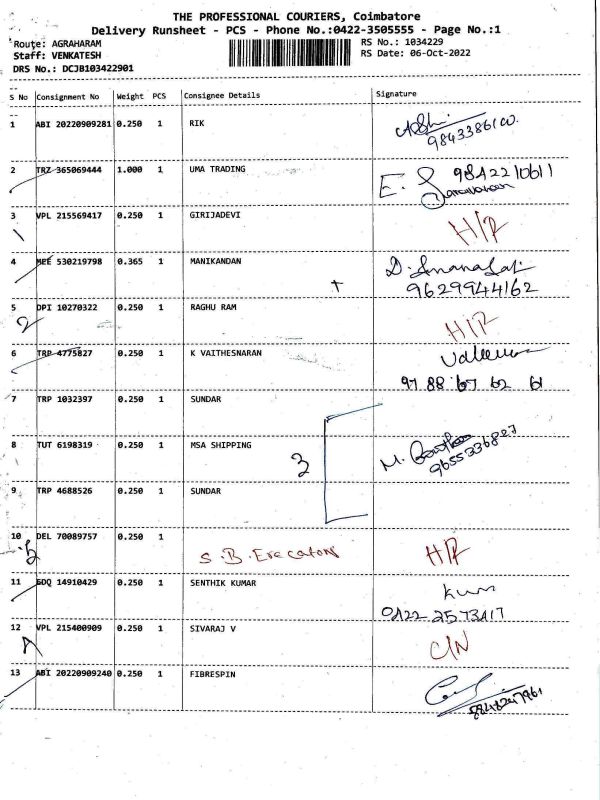 THE PROFESSIONAL COURIERS, Coimbatore
Delivery Runsheet - PCS - Phone No.:0422-3505555 - Page No.:1
Route: AGRAHARAM
RS No.: 1034229
Staff: VENKATESH
RS Date: 06-Oct-2022
DRS No.: DCJB103422901
S No Consignment No Weight PCS Consignee Details Signature
1 ABI 20220909281 0.250 1 RIK
2 TRZ 365069444 1.000 1 UMA TRADING E. 9842210611
3 VPL 215569417 0.250 1 GIRIJADEVI H/R
4 MEE 530219798 0.365 1 MANIKANDAN
9629944162
5 DPI 10270322 0.250 1 RAGHU RAM H/R
2
6 TRP 4775827 0.250 1 K VAITHESNARAN
97 88 67 62 61
7 TRP 1032397 0.250 1 SUNDAR
8 TUT 6198319 0.250 1 MSA SHIPPING 3 M.
9655336827
9 TRP 4688526 0.250 1 SUNDAR
10 DEL 70089757 0.250 1 S.B. Erecators H/R
11 GDQ 14910429 0.250 1 SENTHIK KUMAR Kum
0422 2573417
12 VPL 215400909 0.250 1 SIVARAJ V C/N
13 ABI 20220909240 0.250 1 FIBRESPIN